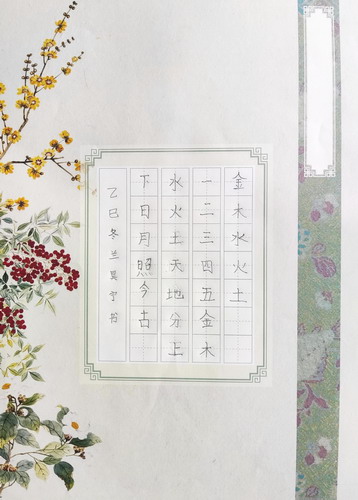 金木水火土
一二三四五金木
水火土天地分上
下日月照今古
乙巳冬兰昊宁书